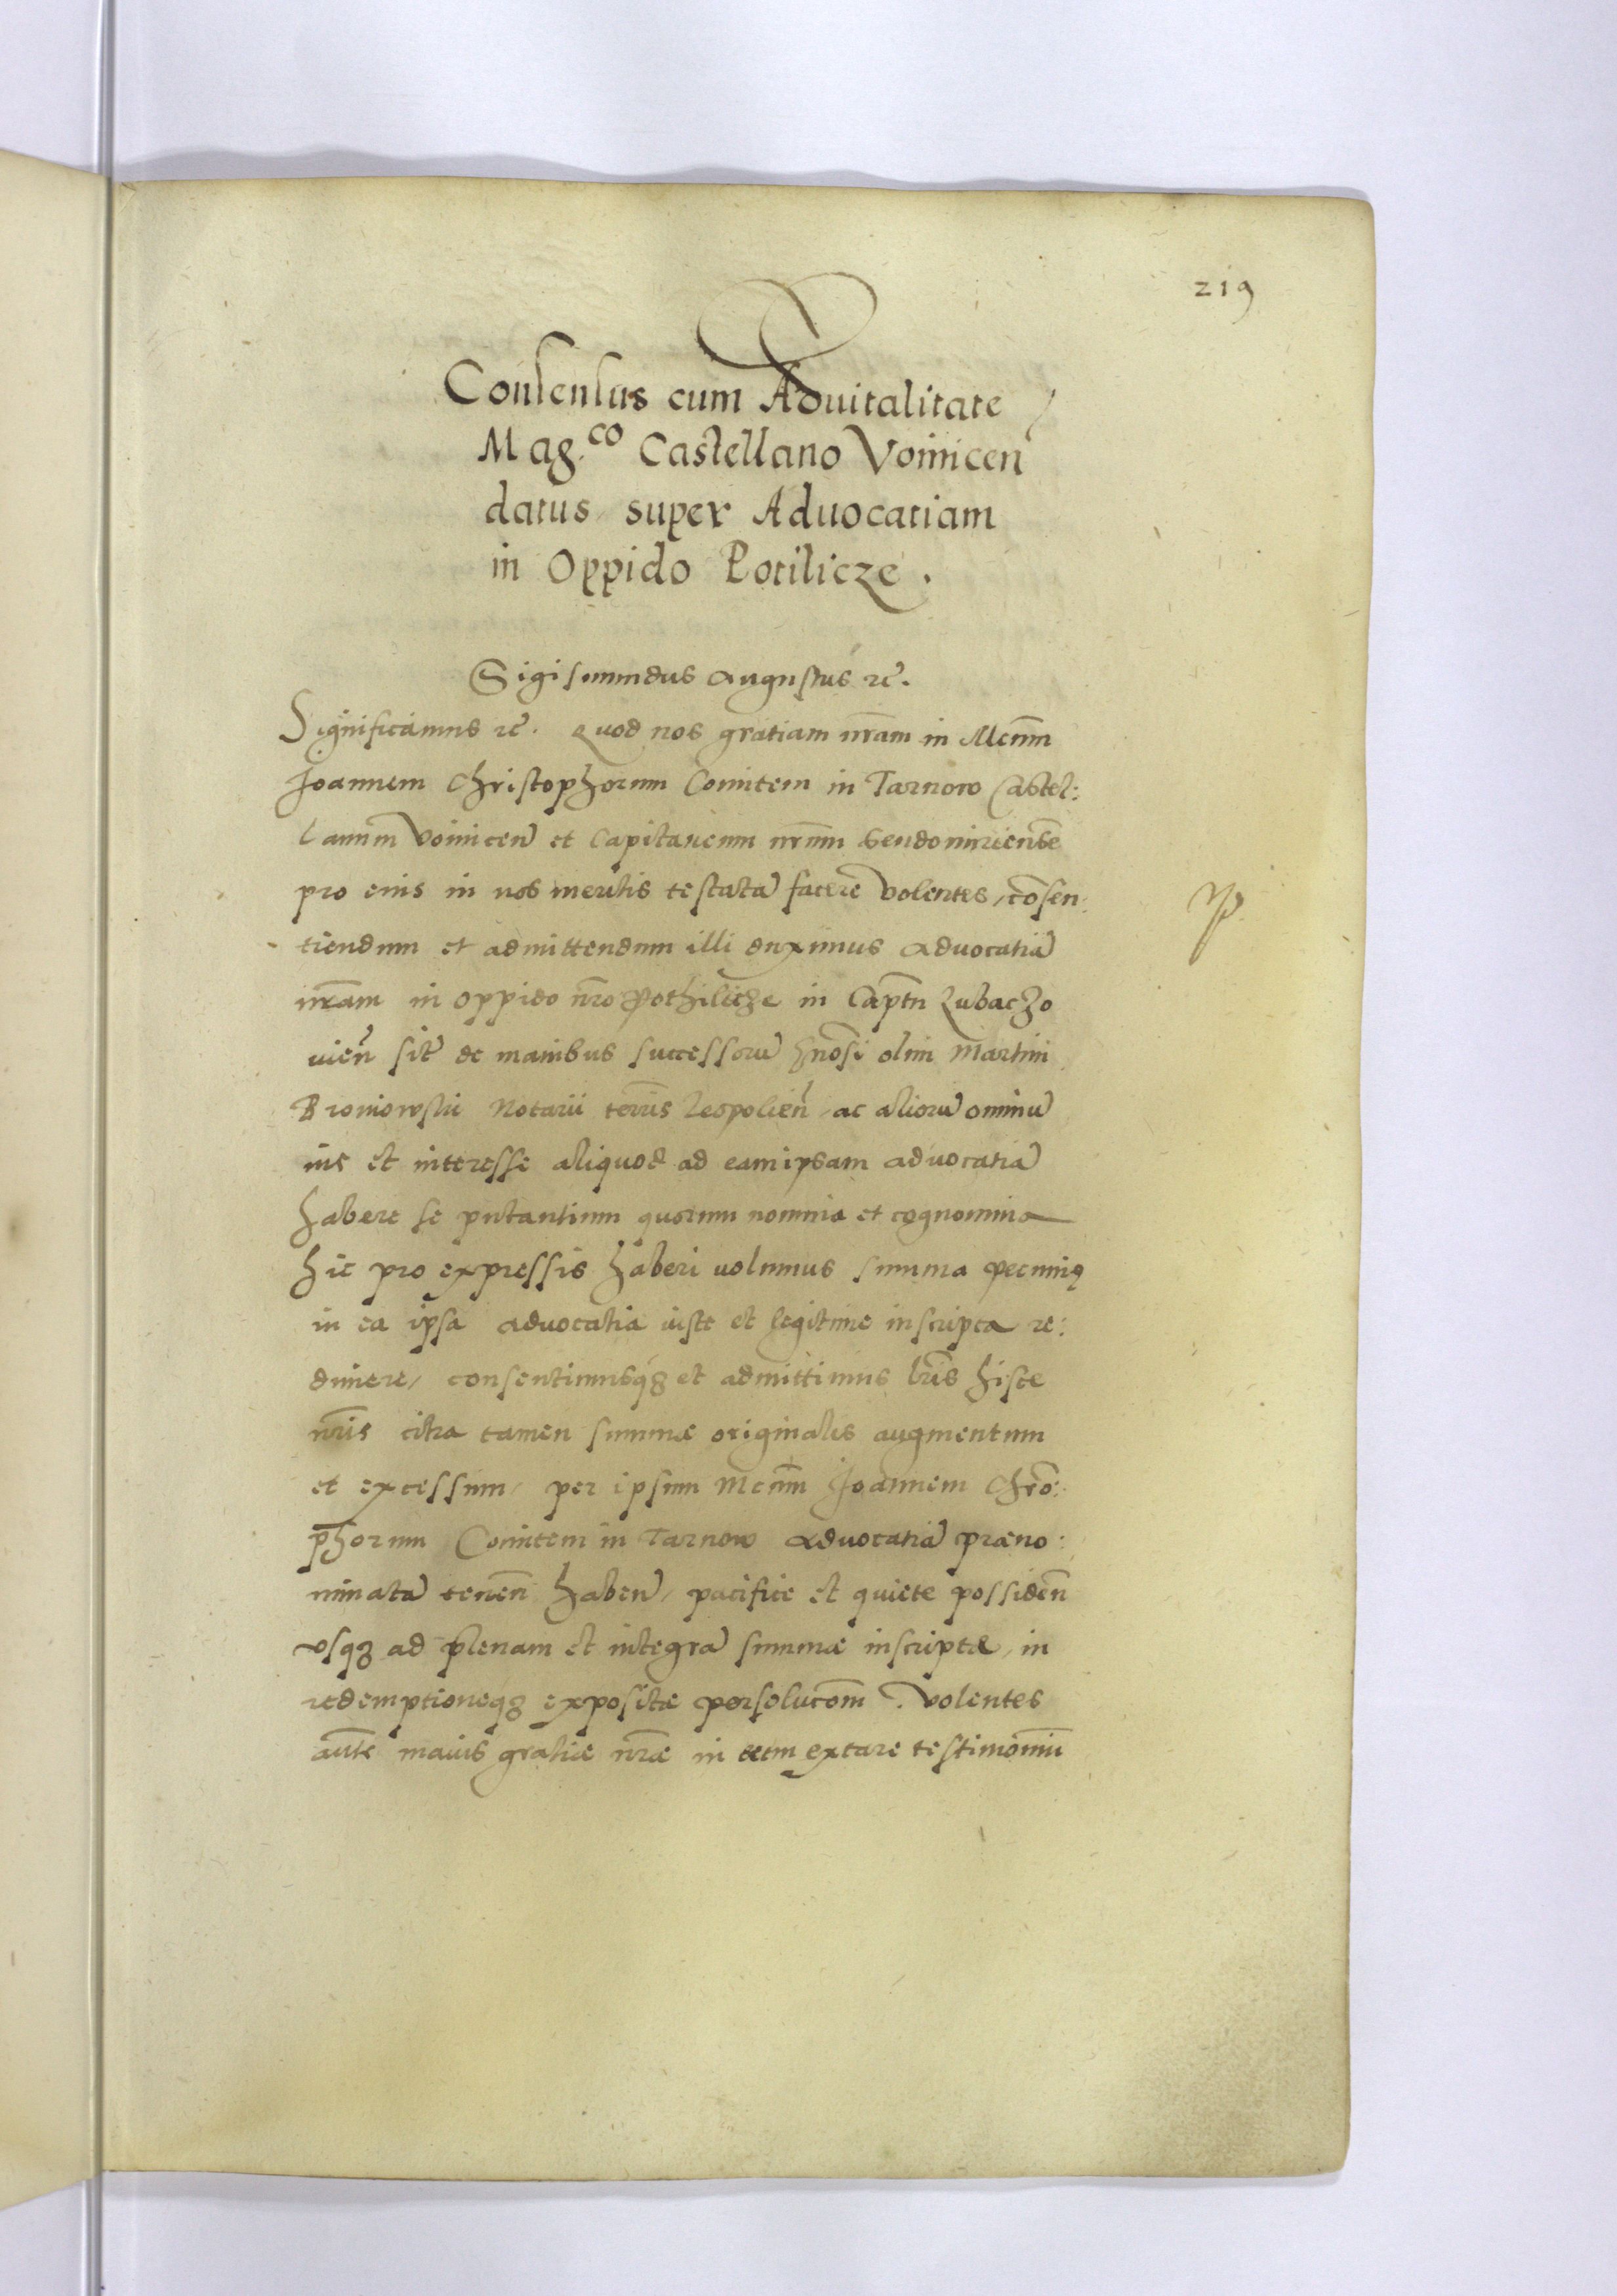 219
Consensus cum Aduitalitate
Mag.co Castellano Voinicen̄
datus super Aduocatiam
in Oppido Potilicze.
Sigismundus Augustus ꝛc̄.
Significamus ꝛc̄. Quod nos gratiam nr̄am in Mcūm
Joannem Christophorum Comitem in Tarnow Castel:
lanum̄ Voinicen̄ et Capitaneum nr̄um Sendomiriensē
pro eius in nos meritis testatā facere volentes, cōsen:
tiendum et admittendum illi duximus aduocatiā
nr̄am in oppido nr̄o Pothilicze in Capt̄n Lubaczo
uien̄ sit̄ de manibus successorū gn̄osi olim Martini
Broniowski Notarii terr̄is Leopolien̄, ac aliorū omniū
ius et interesse aliquod ad eamipsam aduocatiā
habere se putantium quorum nomina et cognomina
hic pro expressis haberi uolumus summa pecunię
in ea ipsa aduocatia iuste et legitime inscripta re:
dimere, consentimusq́ꝫ et admittimus lr̄is hisce
nr̄is citra tamen summæ originalis augmentum
et excessum, per ipsum Mcūm Joannem Chrō:
phorum Comitem in Tarnow aduocatiā præno:
minatā tenen̄ haben̄, pacifice et quiete possiden̄
vsqꝫ ad plenam et integrā summæ inscriptæ, in
redemptioneq́ꝫ expositæ persolucōm. Volentes
aūte maius gratiæ nr̄æ in eum extare testimoniū